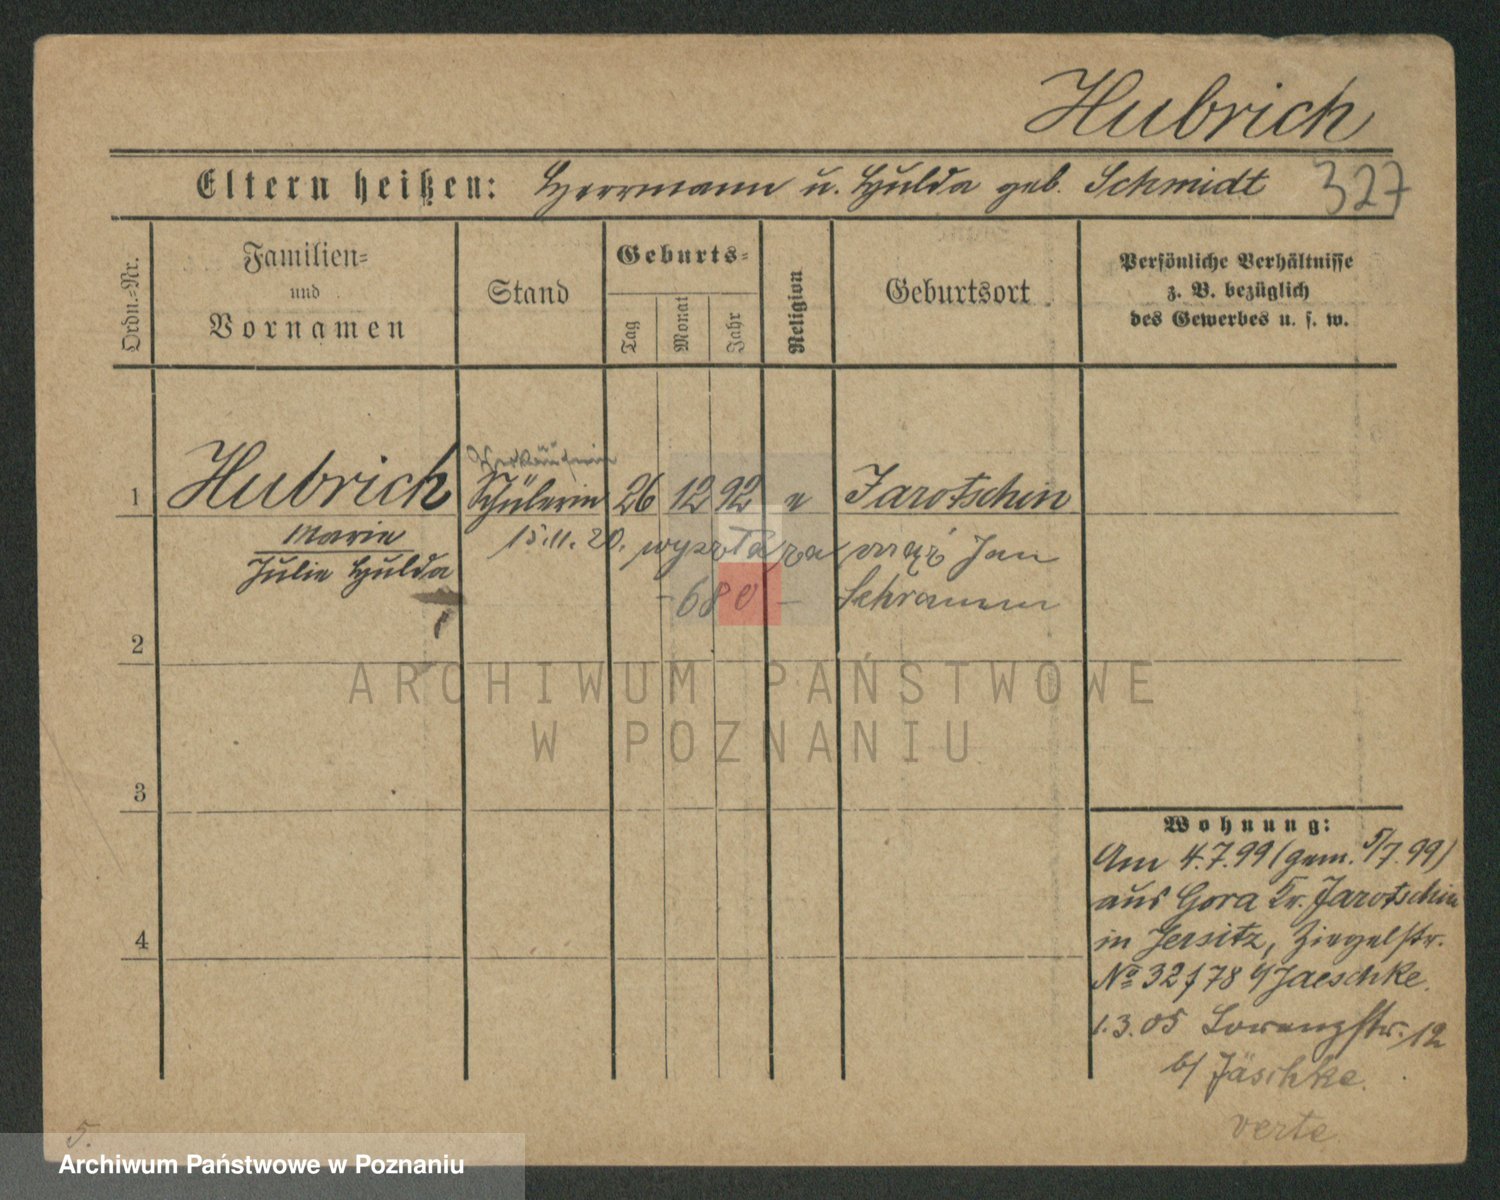 Hubrich
Eltern heißen: Herrmann u. Hulda geb. Schmidt 327
Ordn.-Nr.
Familien-
und
Vornamen
Stand
Geburts-
Tag
Monat
Jahr
Religion
Geburtsort
Persönliche Verhältnisse
z. B. bezüglich
des Gewerbes u. s. w.
Verkäuferin
1 Hubrich Schülerin 26 12 92 e Jarotschin
Marie
Julie Hulda
15.11.20. wyszła za mąż Jan
- 680 - Schramm
2
3
4
Wohnung:
Am 4.7.99 (gem. 5/7.99)
aus Gora Kr. Jarotschin
in Jersitz, Ziegelstr.
No 32/78 b/ Jaeschke.
1.3.05 Lorenzstr. 12
b/ Jäschke.
verte
5.
ARCHIWUM PAŃSTWOWE
W POZNANIU
Archiwum Państwowe w Poznaniu